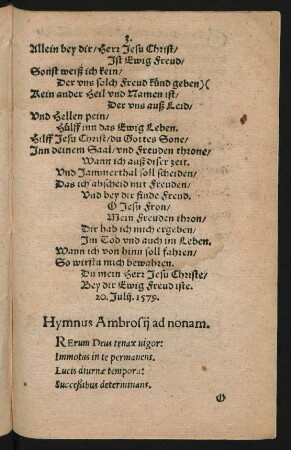 3.
Allein bey dir/ Herr Jesu Christ/
Ist Ewig Freud/
Sonst weiß ich kein/
Der vns solch Freud könd geben)(
Kein ander Heil vnd Namen ist/
Der vns auß Leid/
Vnd Hellen pein/
Hülff inn das Ewig Leben.
Hilff Jesu Christ/ du Gottes Sone/
Inn deinem Saal/ vnd Freuden throne/
Wann ich auß diser zeit.
Vnd Jammerthal soll scheiden/
Das ich abscheid mit Freuden/
Vnd bey dir finde Freud.
O Jesu Fron/
Mein Freuden thron/
Dir hab ich mich ergeben/
Im Tod vnd auch im Leben.
Wann ich von hinn soll fahren/
So wirstu mich bewahren.
Du mein Herr Jesu Christe/
Bey dir Ewig Freud iste.
20. Julij. 1579.
Hymnus Ambrosij ad nonam.
RErum Deus tenax uigor:
Immotus in te permanens.
Lucis diurnæ tempora:
Successibus determinans.
O